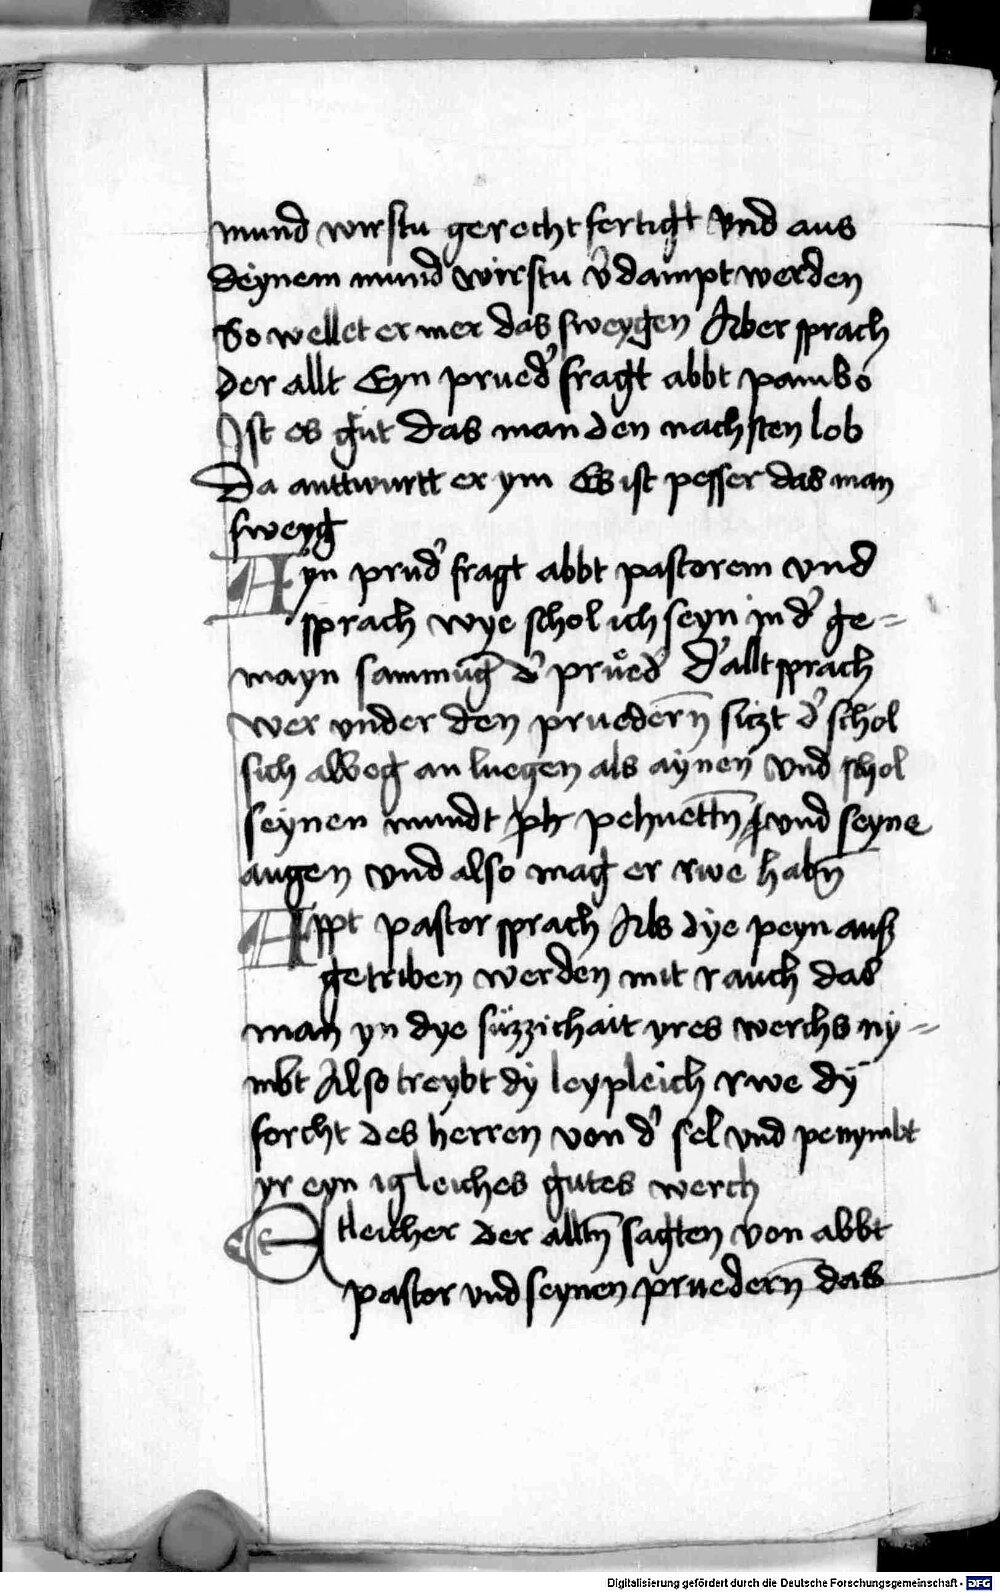 mund wirstu gerechtfertigt Vnd aus
deynem mund wirstu v̓dampt werden
So wellet er mer das sweygen Aber sprach
der allt Eyn prued̓ fragt abbt pambo
Ist es gut das man den nachsten lob
Da anttwurtt er ym Es ist pesser das man
sweyg
Ayn prud̓ fragt abbt pastorem vnd
sprach wye schol ich seyn in d̓ ge=
mayn sammūg d̓ průed̓ D̓ allt sprach
wer vnder den pruedern̄ siczt d̓ schol
sich albeg an luegen als aynen vnd schol
seynen mundt ph pehuettn̄ vnd seyne
augen vnd also mag er rwe habn̄
Appt pastor sprach Als dye peyn ausz
getriben werden mit rauch das
man yn dye süzzichait yres werchs ny=
mbt Also treybt dy leypleich rwe dy
forcht des herren von d̓ sel vnd penymbt
yr eyn igleiches gutes werch
Etleicher der alltn̄ sagten von abbt
pastor vnd seynen pruedern̄ das
Digitalisierung gefördert durch die Deutsche Forschungsgemeinschaft - DFG